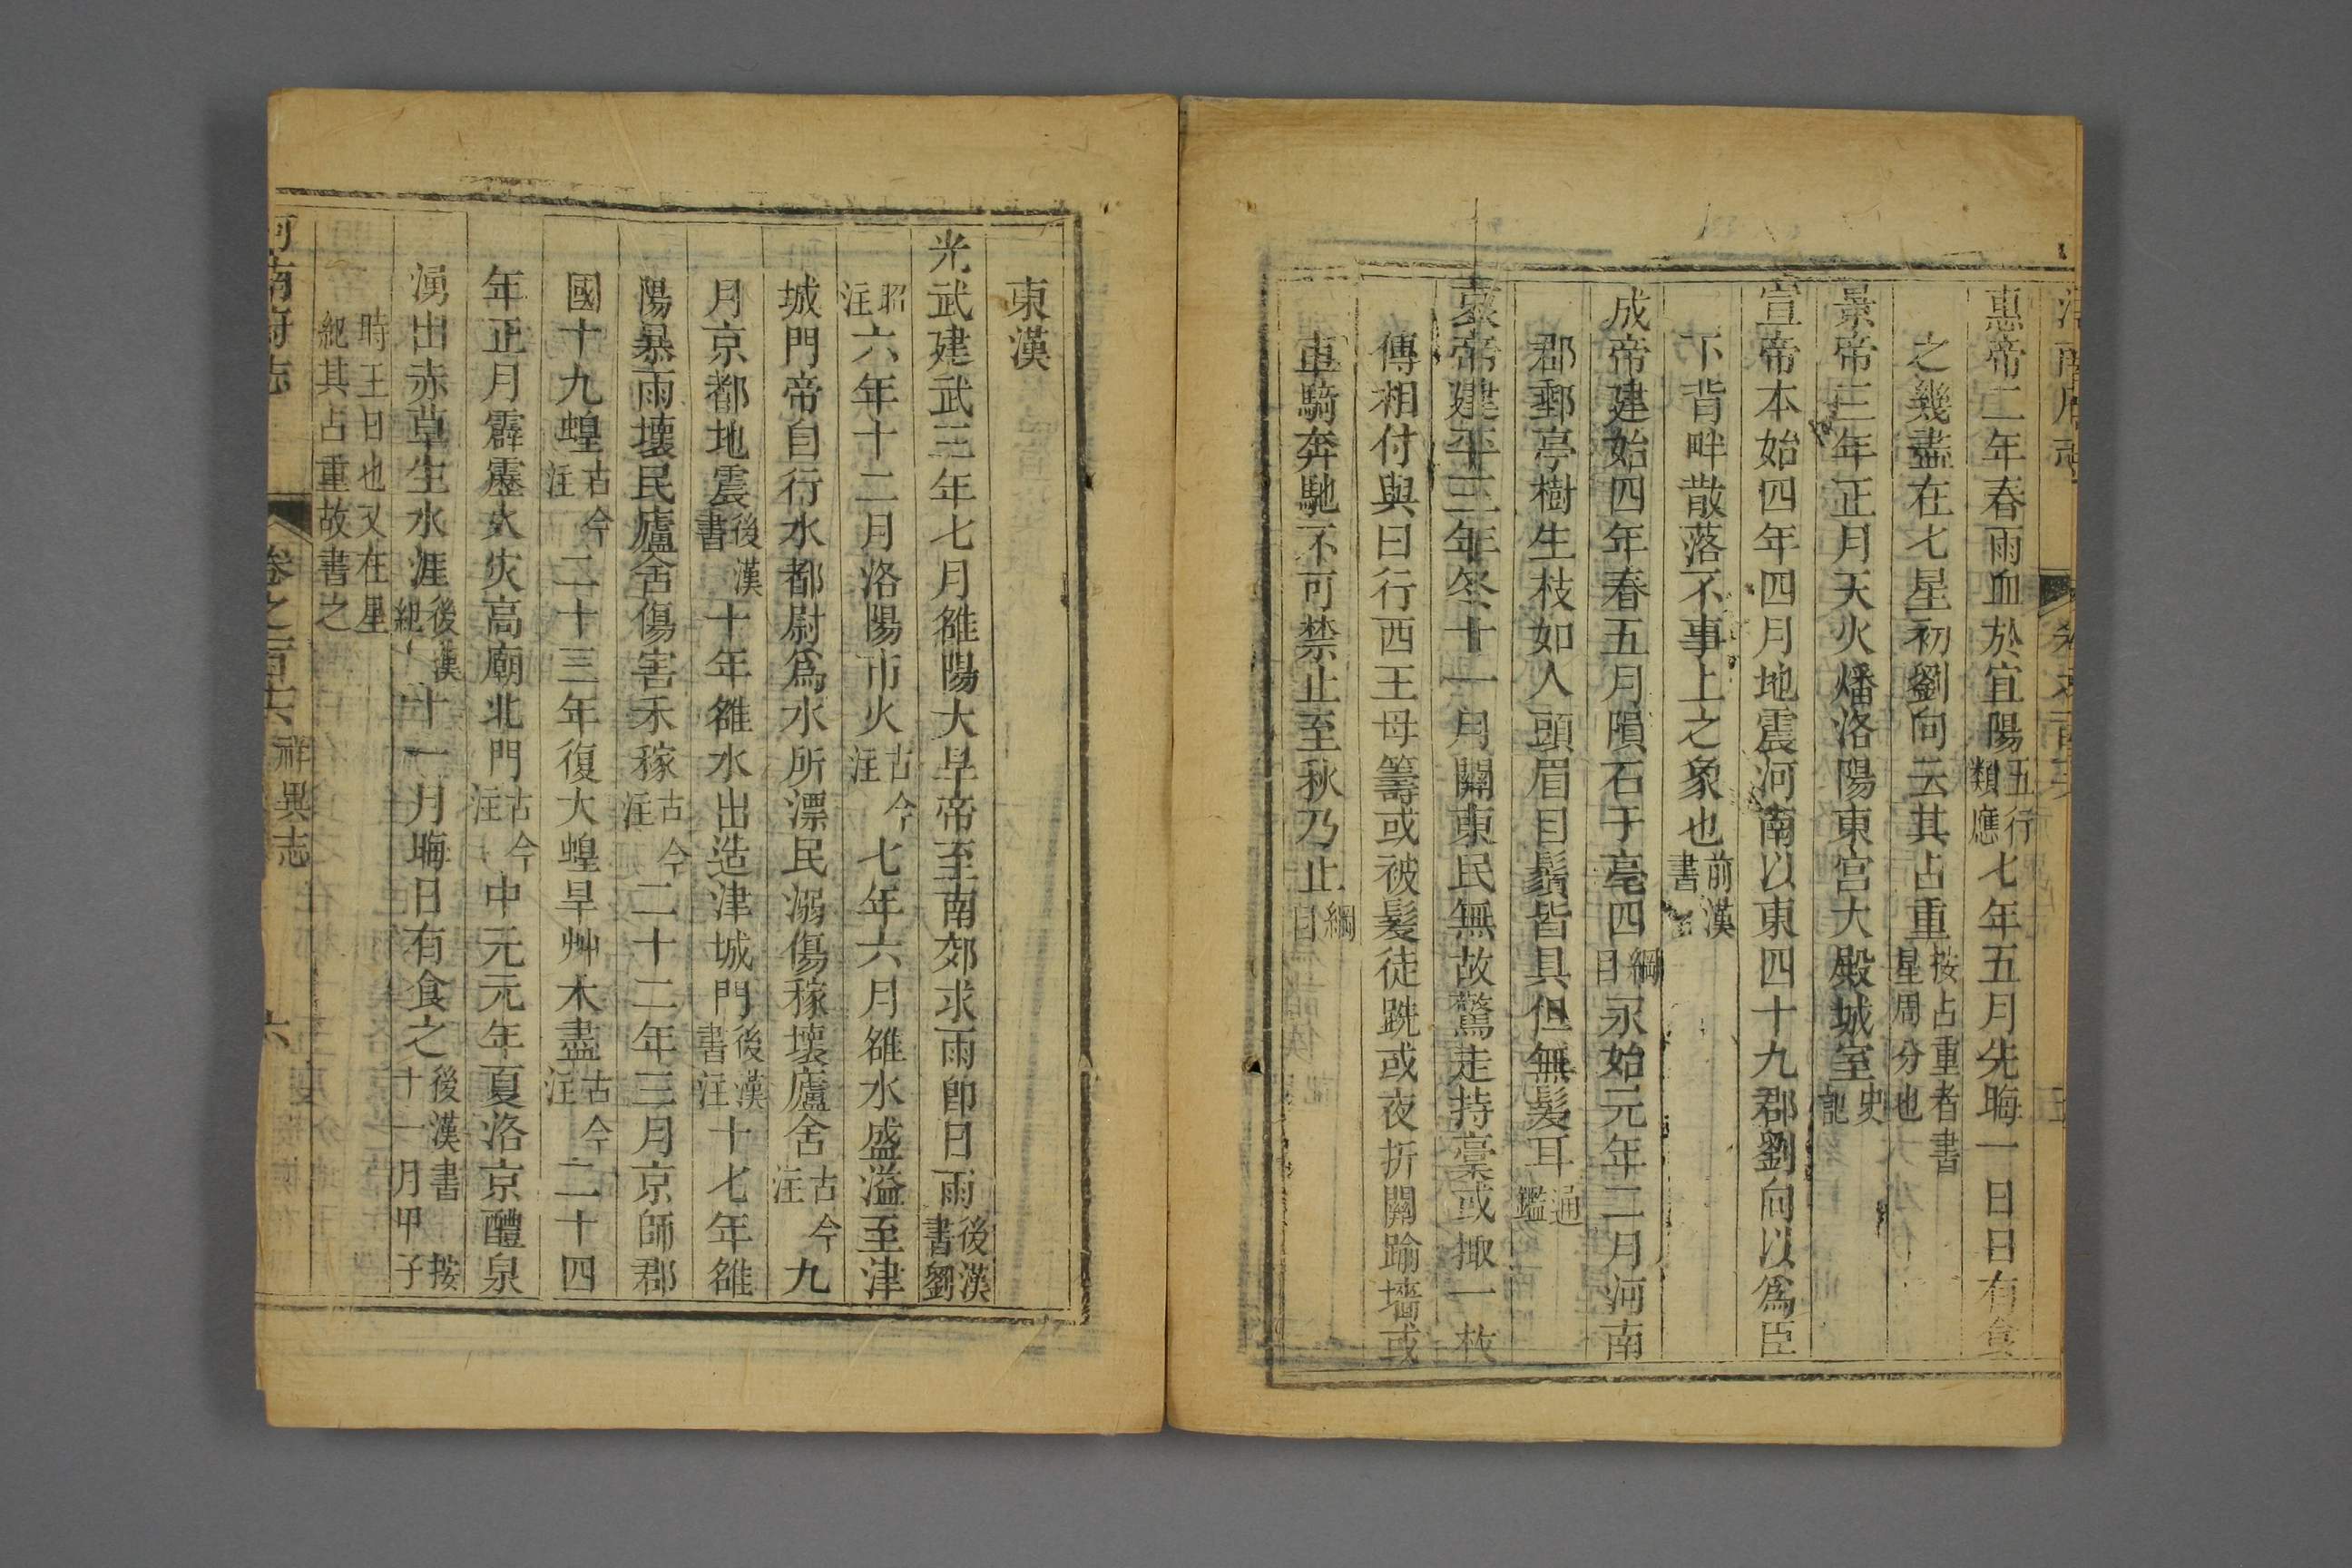 惠帝二年春雨血於宜陽五行類應七年五月先晦一日日有食
之幾盡在七星初劉向云其占重按占重者書星周分也
景帝三年正月天火燔洛陽東宮大殿城室史記
宣帝本始四年四月地震河南以東四十九郡劉向以爲臣
下背畔散落不事上之象也前漢書
成帝建始四年春五月隕石于亳四綱目永始元年二月河南
郡郵亭樹生枝如人頭眉目鬚皆具但無髮耳通鑑
哀帝建平三年冬十一月關東民無故驚走持稾或掫一枚
傳相付與曰行西王母籌或被髮徒跣或夜折關踰墻或
車騎奔馳不可禁止至秋乃止綱目
東漢
光武建武三年七月雒陽大旱帝至南郊求雨卽日雨後漢書劉
昭注六年十二月洛陽市火古今注七年六月雒水盛溢至津
城門帝自行水都尉爲水所漂民溺傷稼壞廬舍古今注九
月京都地震後漢書十年雒水出造津城門後漢書注十七年雒
陽暴雨壞民廬舍傷害禾稼古今注二十二年三月京師郡
國十九蝗古今注二十三年復大蝗旱艸木盡古今注二十四
年正月霹靂火災高廟北門古今注中元元年夏洛京醴泉
湧出赤草生水涯後漢紀十一月晦日有食之後漢書按十一月甲子
時王日也又在星紀其占重故書之
河南府志 卷之一百十六 祥異志 六